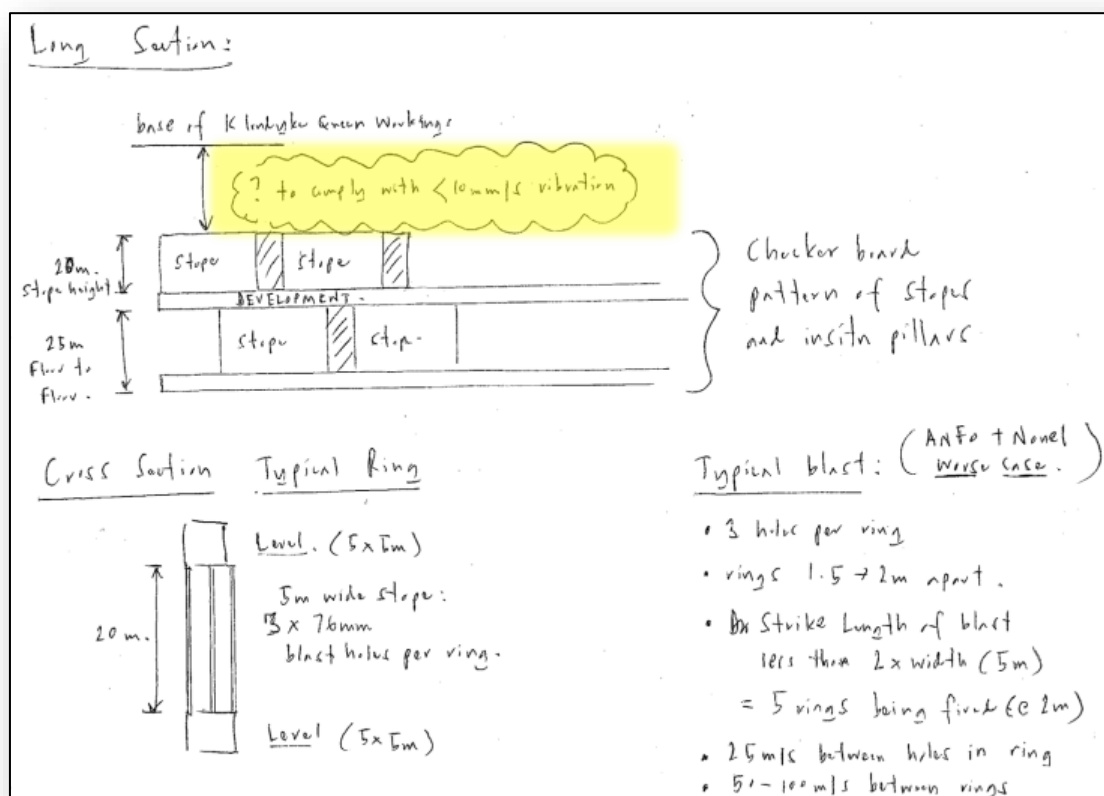 Long Section:
base of Klondyke Queen Workings
? to comply with <10mm/s vibration
20m.
stope height.
stope
stope
DEVELOPMENT.
25m
Floor to
Floor.
stope
stope
Checker board
pattern of stopes
and insitu pillars
Cross Section Typical Ring
Level. (5x5m)
20m.
5m wide stope:
3 x 76mm
blast holes per ring.
Level (5x5m)
Typical blast: (ANFO + Nonel
worse case.)
• 3 holes per ring
• rings 1.5 → 2m apart.
• Strike Length of blast
less than 2 x width (5m)
= 5 rings being fired (@ 2m)
• 25m/s between holes in ring
• 50-100m/s between rings